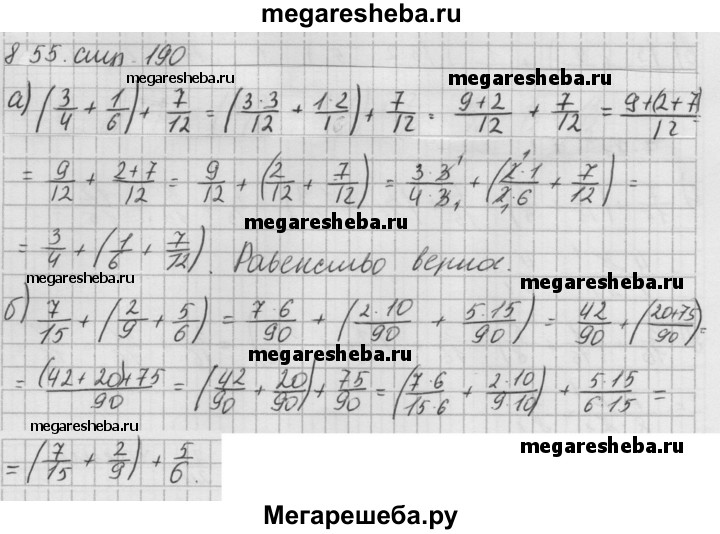 megaresheba.ru
855. стр. 190
megaresheba.ru megaresheba.ru
а) (3/4 + 1/6) + 7/12 = (3·3/12 + 1·2/1) + 7/12 = 9+2/12 + 7/12 = 9+(2+7)/12
megaresheba.ru
= 9/12 + 2+7/12 = 9/12 + (2/12 + 7/12) = 3·3/4·3 + (2·1/2·6 + 7/12) =
megaresheba.ru
= 3/4 + (1/6 + 7/12). Равенство верна.
megaresheba.ru megaresheba.ru
б) 7/15 + (2/9 + 5/6) = 7·6/90 + (2·10/90 + 5·15/90) = 42/90 + (20+75/90) =
megaresheba.ru megaresheba.ru
= (42+20)+75/90 = (42/90 + 20/90) + 75/90 = (7·6/15·6 + 2·10/9·10) + 5·15/6·15 =
megaresheba.ru
= (7/15 + 2/9) + 5/6.
megaresheba.ru
megaresheba.ru
Мегарешеба.ру